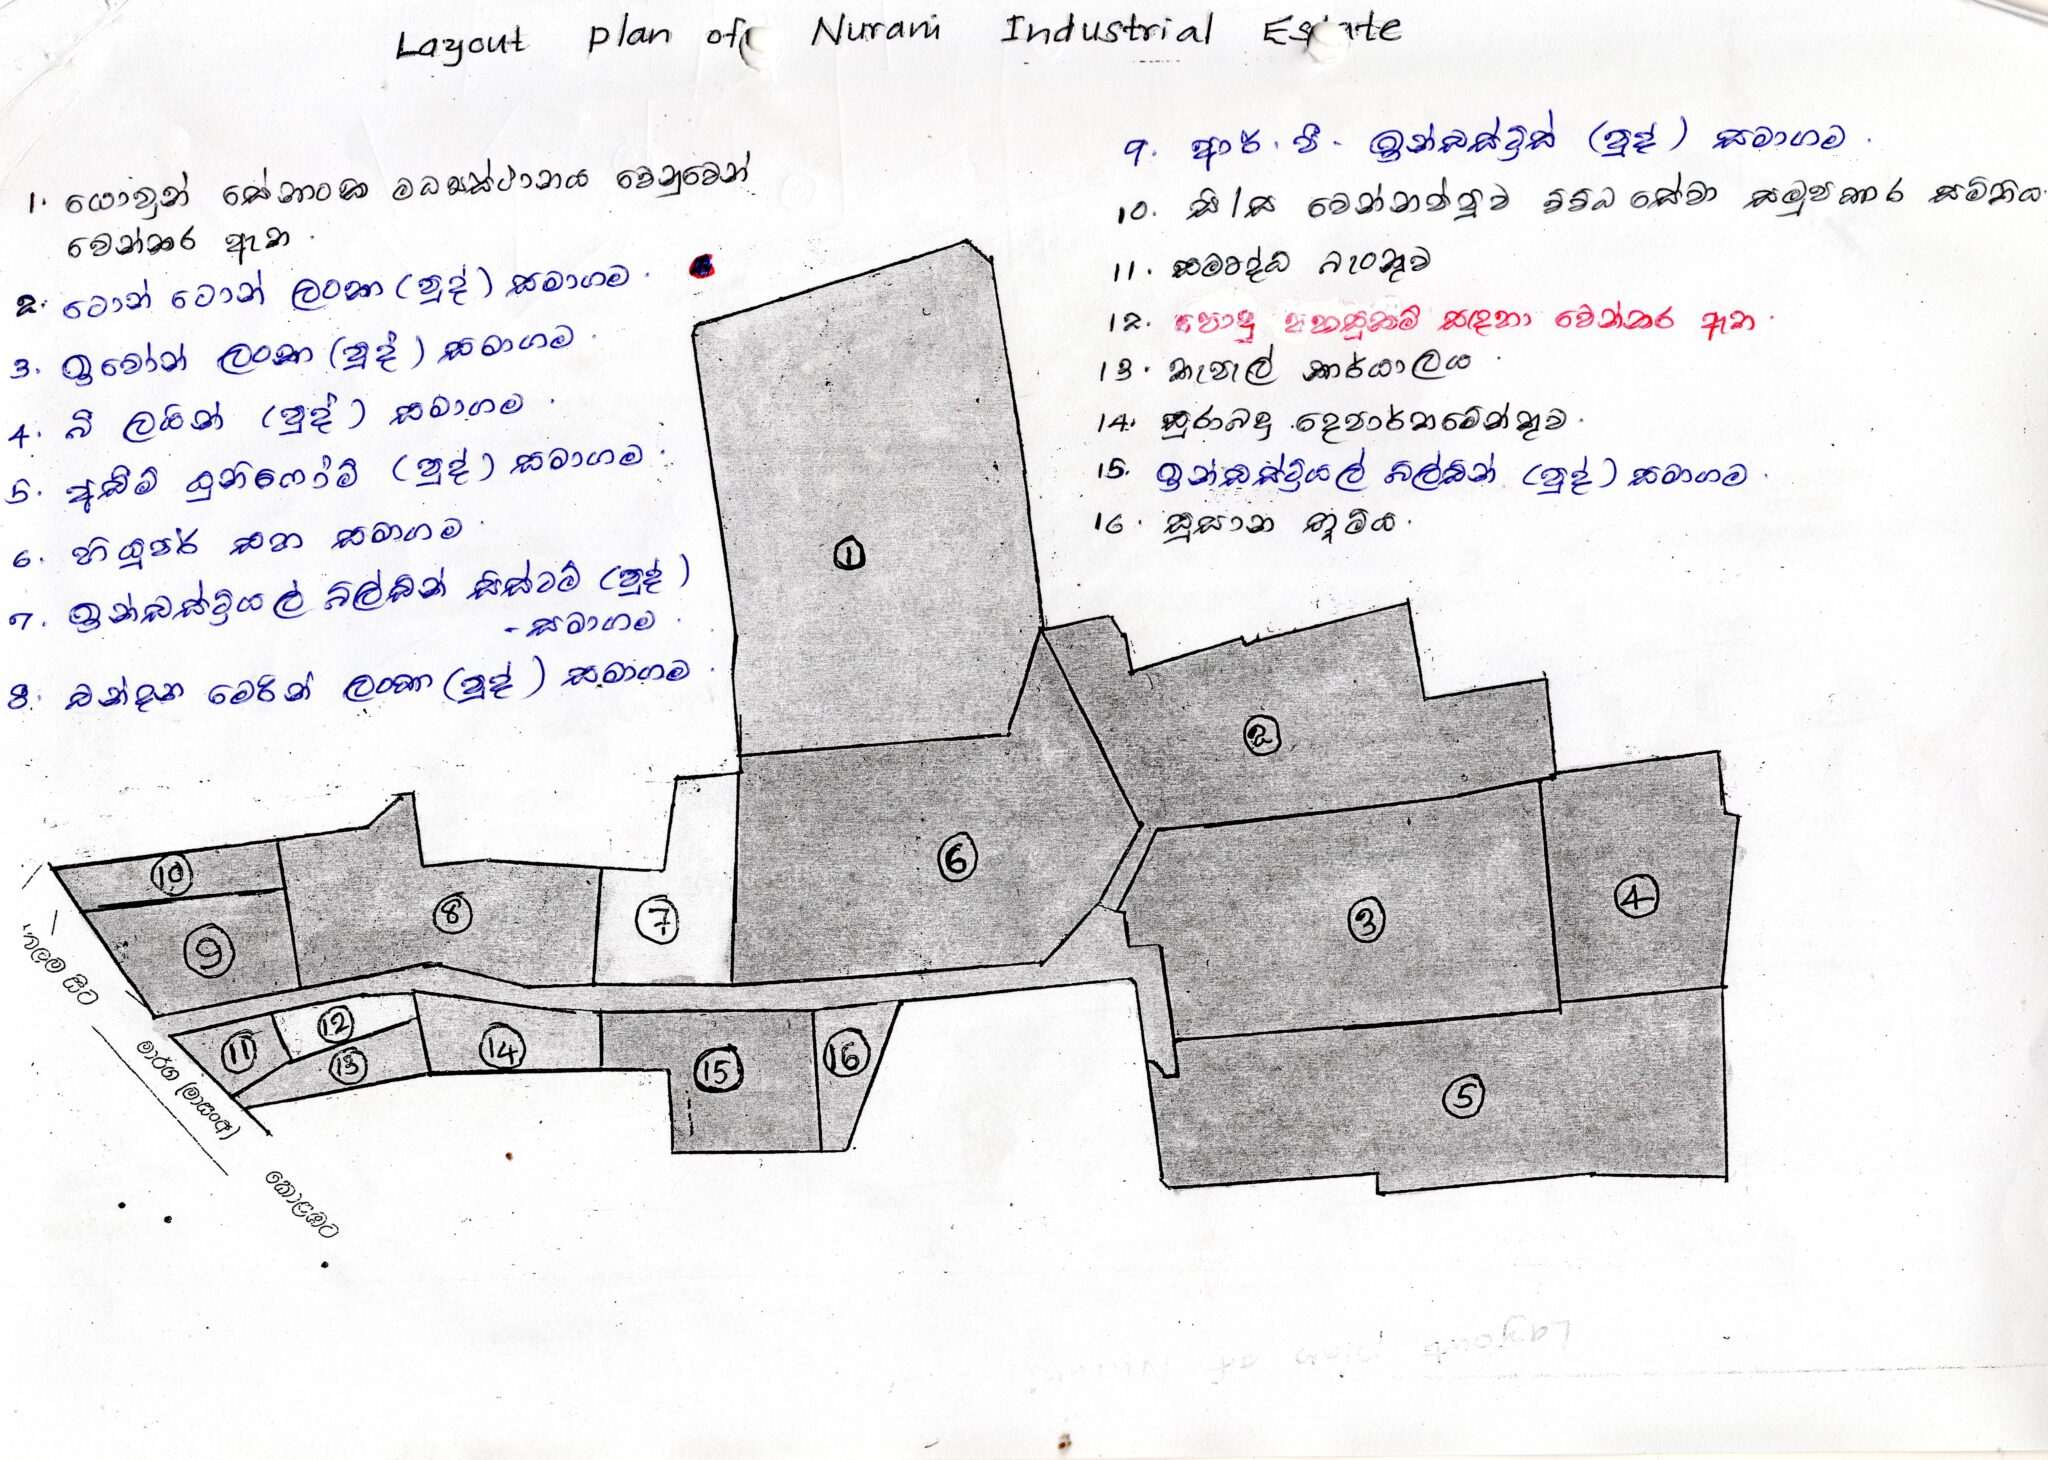 Layout plan of Nurani Industrial Estate
1. යොවුන් සේනාංක මධ්‍යස්ථානය වෙනුවෙන්
වෙන්කර ඇත.
2. ටොන් ටොන් ලංකා (පුද්) සමාගම.
3. ඉවෝන් ලංකා (පුද්) සමාගම.
4. බී ලයින් (පුද්) සමාගම.
5. අසීම් යුනිෆෝම් (පුද්) සමාගම.
6. සහ සමාගම.
7. ඉන්ඩස්ට්‍රියල් බිල්ඩින් සිස්ටම් (පුද්)
- සමාගම.
8. චන්දන මෙරින් ලංකා (පුද්) සමාගම.
9. ආර්. පී. ඉන්ඩස්ට්‍රීස් (පුද්) සමාගම.
10. සී/ස වෙන්නප්පුව විවිධ සේවා සමුපකාර සමිතිය.
11. සමෘද්ධි බැංකුව
12. පොදු පහසුකම් සඳහා වෙන්කර ඇත.
13. තැපැල් කාර්යාලය.
14. සුරාබදු දෙපාර්තමේන්තුව.
15. ඉන්ඩස්ට්‍රියල් බිල්ඩින් (පුද්) සමාගම.
16. සුසාන භූමිය.
1
2
3
4
5
6
7
8
9
10
11
12
13
14
15
16
සිට
මාර්ග (මාසංඅ)
කොළඹට
Layout plan of